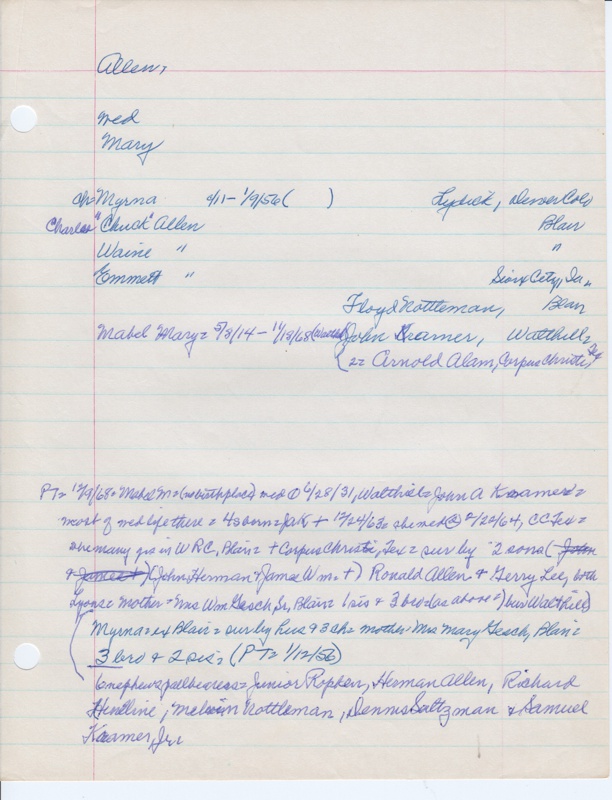 Allen,
wed
Mary
ch= Myrna 9/11 - 1/9/56 ( ) Lydick, Denver Colo
Charles "Chuck" Allen Blair
Waine " "
Emmett " Sioux City, Ia.
Floyd Nottleman, Blair
Mabel Mary= 5/3/14 - 11/15/68 John Kramer, Walthill=
(2= Arnold Alam, Corpus Christi, Tex
PT= 12/9/68= Mabel M= (no birthplace) wed @ 6/28/31, Walthill= John A Kramer=
most of wed life there = 4 sons born = Jack + 12/24/63= she wed @ 2/22/64, CC Tex=
many yrs in WRC, Blair= + Corpus Christi, Tex= sur by 2 sons (John
+ James +) (John Herman + James Wm. +) Ronald Allen + Gerry Lee, both
Lyons= mother= Mrs Wm Gesch, Sr, Blair= 1 sis + 3 bro (as above=) bur Walthill)
Myrna= ex Blair= sur by hus + 3 ch= mother= Mrs Mary Gesch, Blair=
3 bro + 2 sis= (PT= 1/12/56)
6 nephews pallbearers= Junior Ropken, Herman Allen, Richard
Hineline, Melvin Nottleman, Dennis Saltzman + Samuel
Kramer, Jr